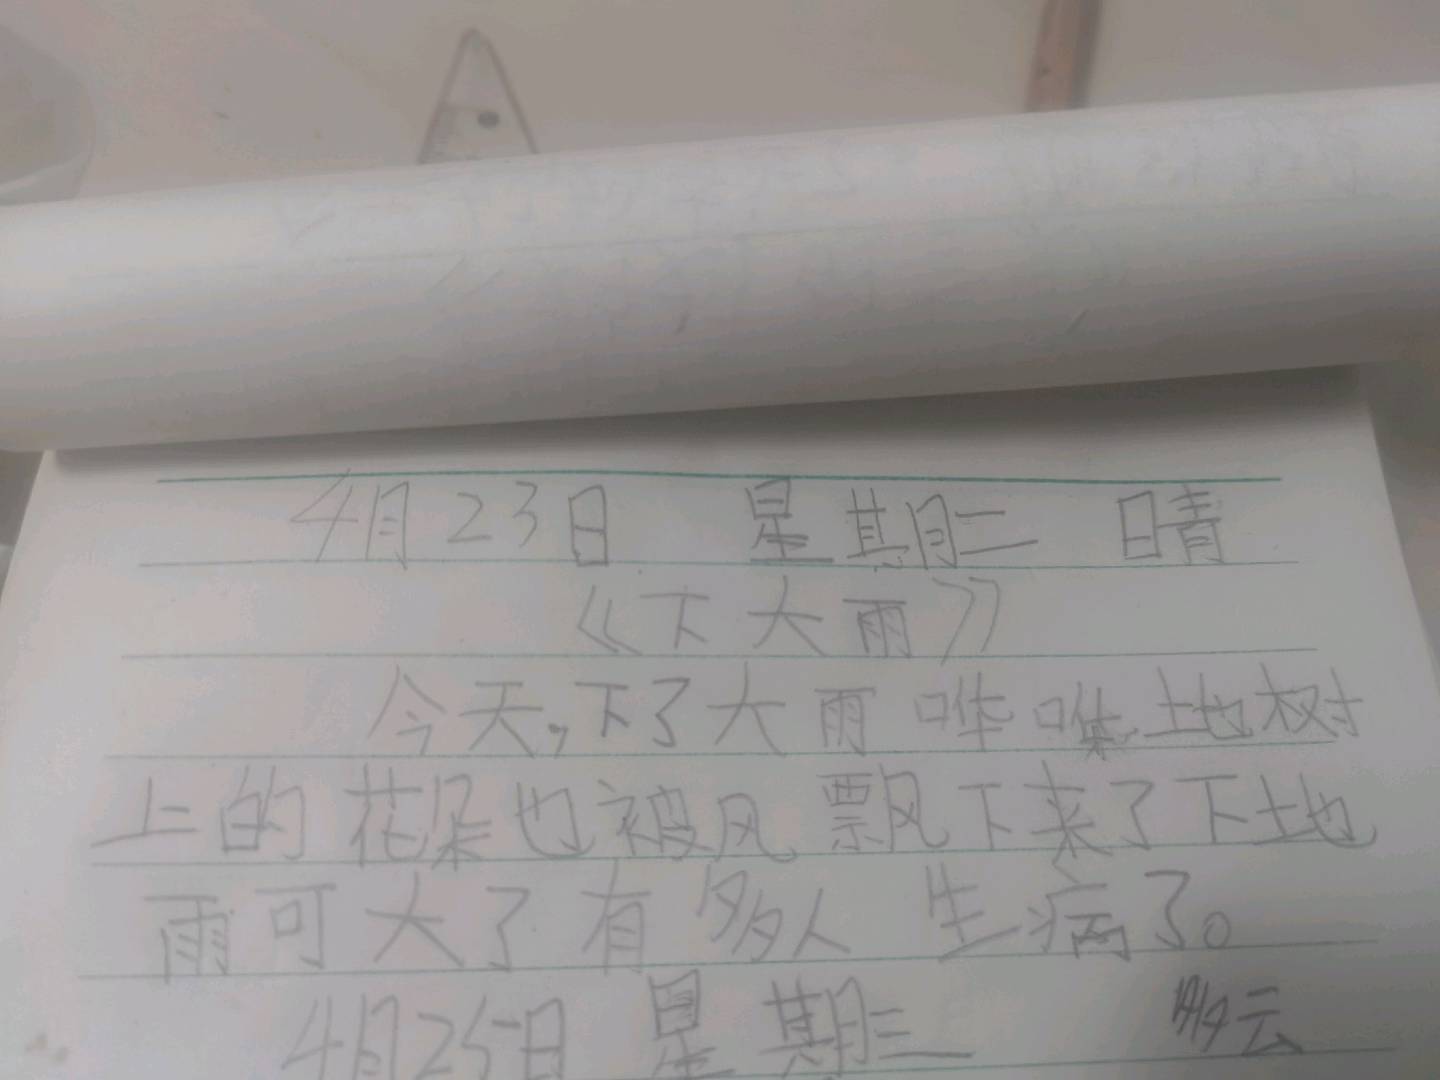 4月23日 星期二 晴
《下大雨》
今天,下了大雨哗哗地树
上的花朵也被风飘下来了下地
雨可大了有多人生病了。
4月25日 星期三 云